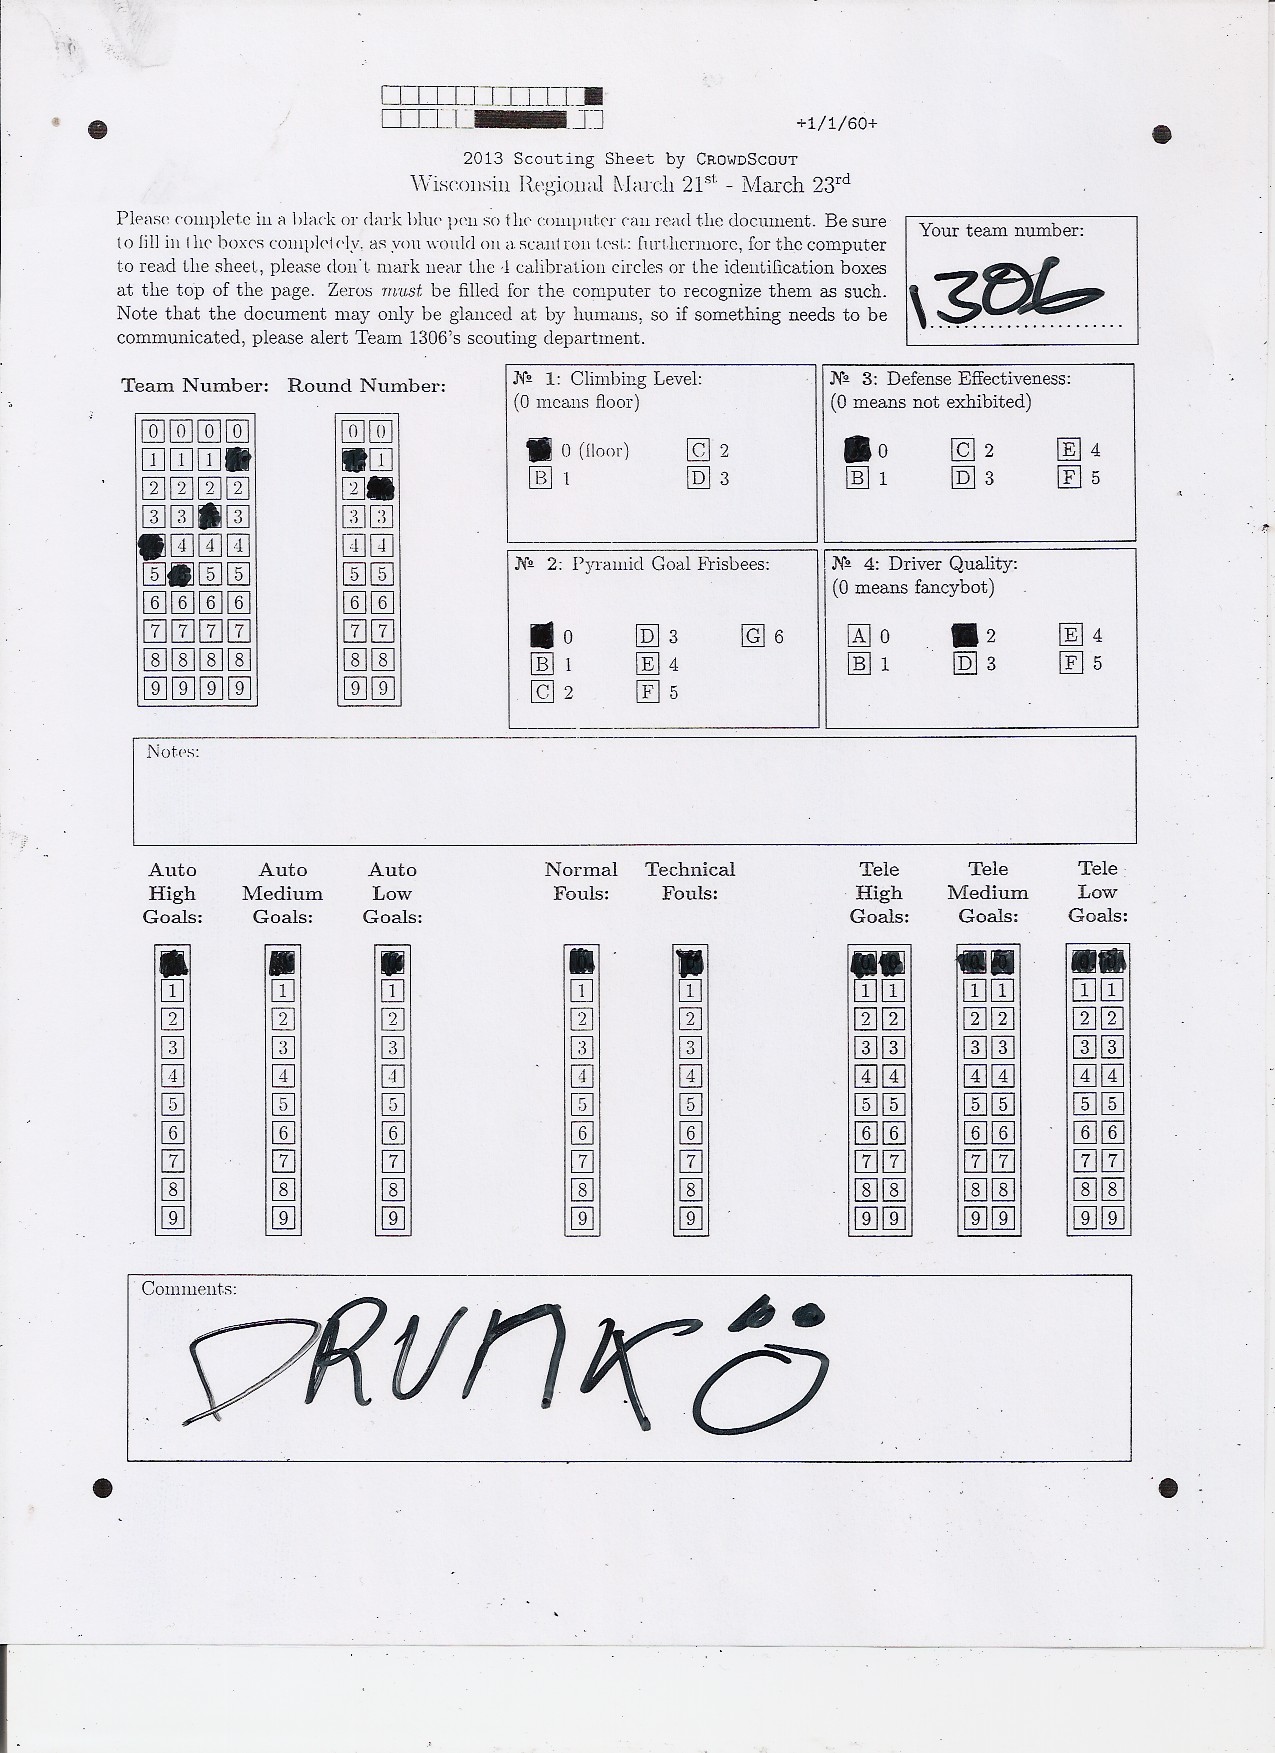 +1/1/60+
2013 Scouting Sheet by CROWDSCOUT
Wisconsin Regional March 21st - March 23rd
Please complete in a black or dark blue pen so the computer can read the document. Be sure
to fill in the boxes completely, as you would on a scantron test; furthermore, for the computer
to read the sheet, please don't mark near the 4 calibration circles or the identification boxes
at the top of the page. Zeros must be filled for the computer to recognize them as such.
Note that the document may only be glanced at by humans, so if something needs to be
communicated, please alert Team 1306's scouting department.
Your team number:
1306
Team Number: Round Number:
0 0 0 0 0 0
1 1 1 1
2 2 2 2 2
3 3 3 3 3
4 4 4 4 4
5 5 5 5 5
6 6 6 6 6 6
7 7 7 7 7 7
8 8 8 8 8 8
9 9 9 9 9 9
№ 1: Climbing Level:
(0 means floor)
0 (floor) C 2
B 1 D 3
№ 3: Defense Effectiveness:
(0 means not exhibited)
0 C 2 E 4
B 1 D 3 F 5
№ 2: Pyramid Goal Frisbees:
0 D 3 G 6
B 1 E 4
C 2 F 5
№ 4: Driver Quality:
(0 means fancybot)
A 0 2 E 4
B 1 D 3 F 5
Notes:
Auto High Goals: Auto Medium Goals: Auto Low Goals: Normal Fouls: Technical Fouls: Tele High Goals: Tele Medium Goals: Tele Low Goals:
1 1 1 1 1 1 1 1 1 1 1
2 2 2 2 2 2 2 2 2 2 2
3 3 3 3 3 3 3 3 3 3 3
4 4 4 4 4 4 4 4 4 4 4
5 5 5 5 5 5 5 5 5 5 5
6 6 6 6 6 6 6 6 6 6 6
7 7 7 7 7 7 7 7 7 7 7
8 8 8 8 8 8 8 8 8 8 8
9 9 9 9 9 9 9 9 9 9 9
Comments:
DRUNK